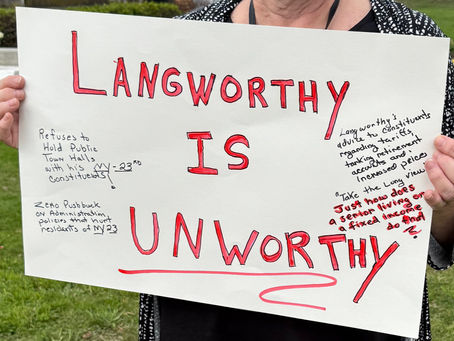 LANGWORTHY
IS
UNWORTHY
Refuses to
Hold Public
Town Halls
with his NY-23RD
Constituents!
Zero Pushback
on Administration
policies that hurt
residents of NY23
Langworthy's
advice to constituents
regarding tariffs,
tanking retirement
accounts and
increased prices
"Take the Long view"
Just how does
a senior living on
a fixed income
do that
?